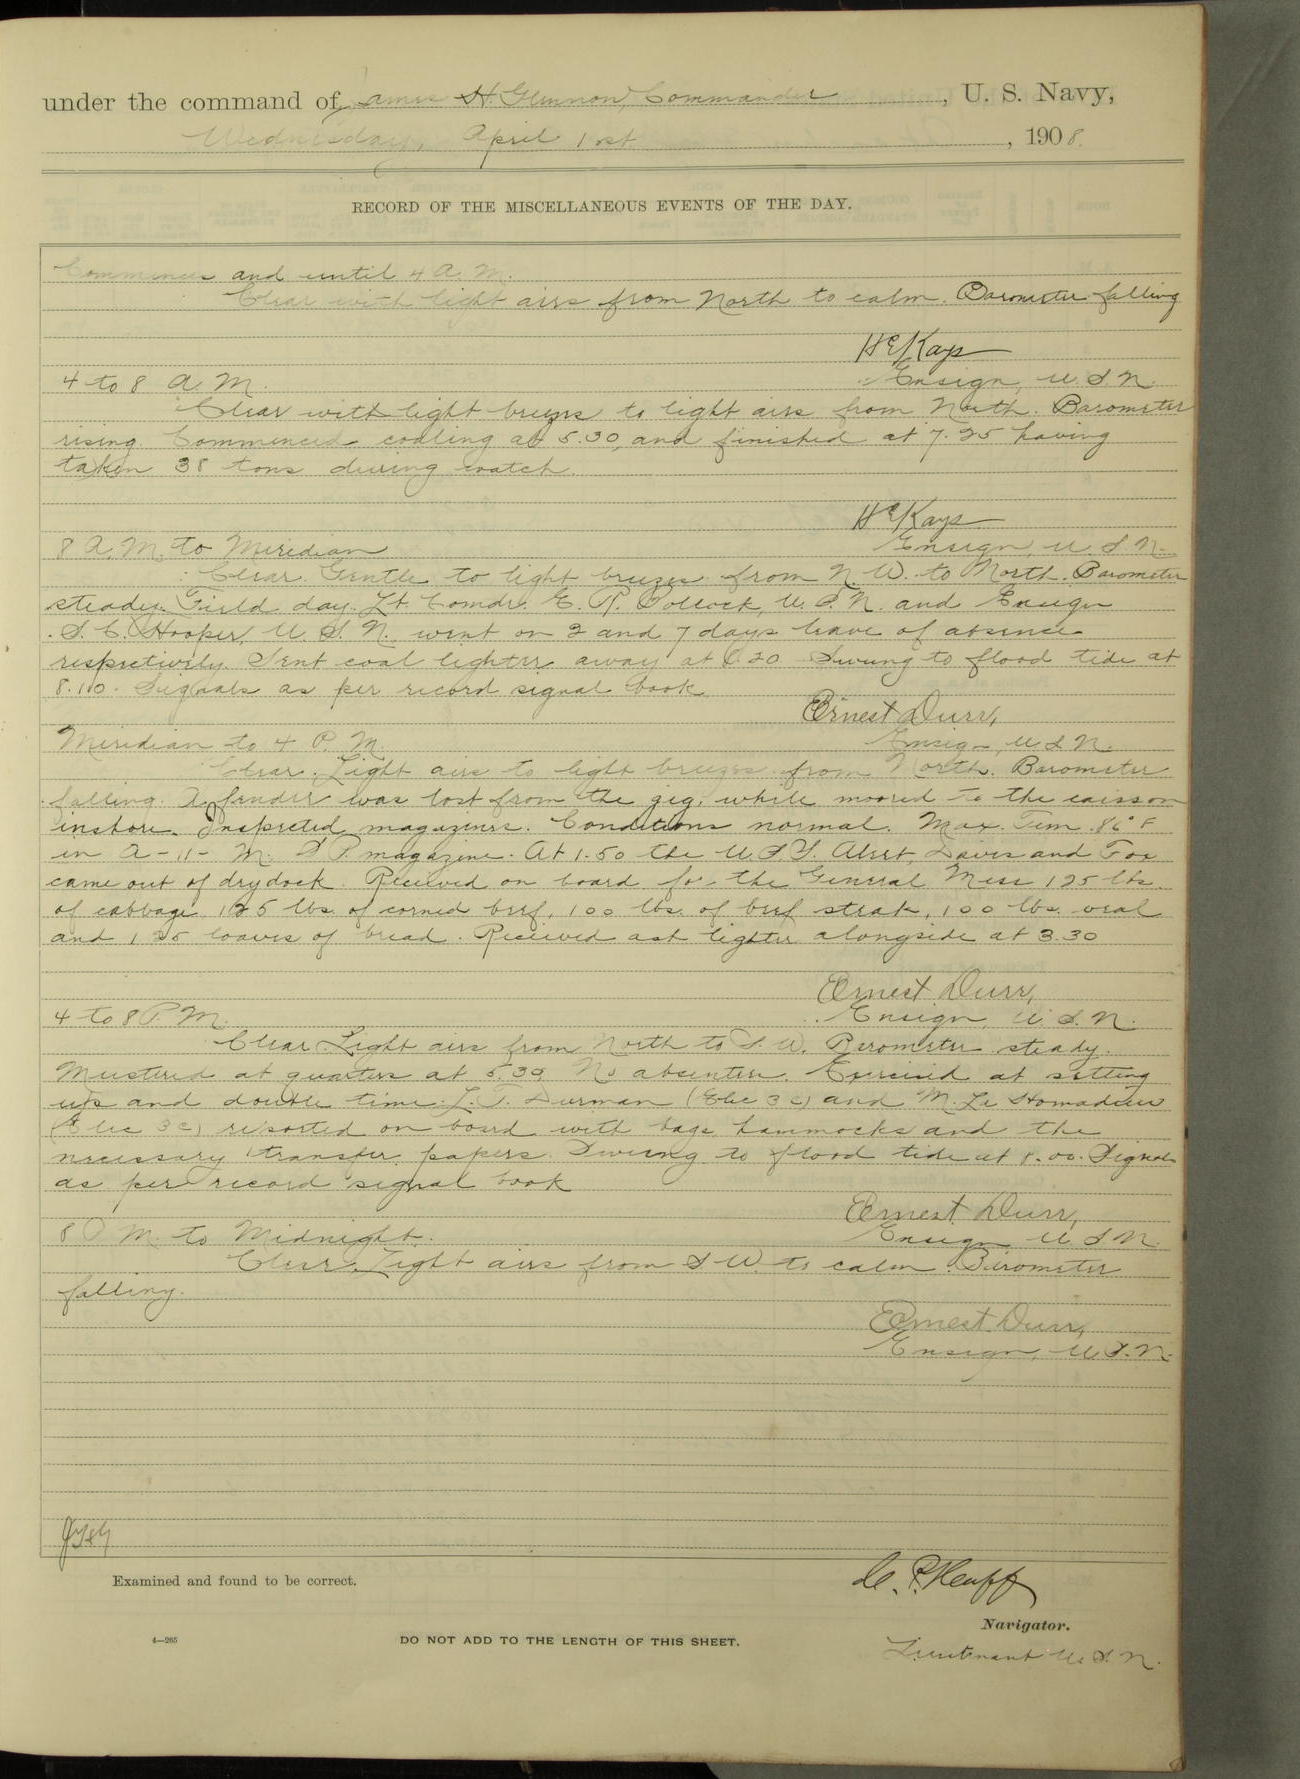 under the command of James H. Glennon, Commander, U. S. Navy,
Wednesday, April 1st, 1908.
RECORD OF THE MISCELLANEOUS EVENTS OF THE DAY.
Commences and until 4 A. M.
Clear with light airs from North to calm. Barometer falling
H E Kays
Ensign, U. S. N.
4 to 8 A. M.
Clear with light breezes to light airs from North. Barometer
rising. Commenced coaling at 5.30, and finished at 7.25 having
taken 38 tons during watch.
H E Kays
Ensign, U. S. N.
8 A. M. to Meridian
Clear. Gentle to light breezes from N. W. to North. Barometer
steady. Field day. Lt. Comdr. E. R. Pollock, U. S. N. and Ensign
S. C. Hooper, U. S. N. went on 2 and 7 days leave of absence
respectively. Sent coal lighter away at 8.20 Swung to flood tide at
8.10. Signals as per record signal book
Ernest Durr,
Ensign, U. S. N.
Meridian to 4 P. M.
Clear. Light airs to light breezes from North. Barometer
falling. A fender was lost from the gig, while moored to the caisson
inshore. Inspected magazines. Conditions normal. Max. Tem. 86° F
in A-11-M. S. P. magazine. At 1.50 the U. S. S. Alert, Davis and Fox
came out of drydock. Received on board for the General Mess 125 lbs.
of cabbage, 125 lbs. of corned beef, 100 lbs. of beef steak, 100 lbs. veal
and 125 loaves of bread. Received ash lighter alongside at 3.30
Ernest Durr,
Ensign, U. S. N.
4 to 8 P. M.
Clear. Light airs from North to S. W. Barometer steady.
Mustered at quarters at 5.30. No absentees. Exercised at setting
ups and double time. L. T. Durman (Elec 3 c) and M. La
(Elec 3c) reported on board with bags, hammocks and the
necessary transfer papers. Swung to flood tide at 8.00. Signals
as per record signal book
Ernest Durr,
Ensign U. S. N.
8 P. M. to Midnight.
Clear. Light airs from S W. to calm. Barometer
falling.
Ernest Durr,
Ensign, U. S. N.
Examined and found to be correct.
Navigator.
4—265
DO NOT ADD TO THE LENGTH OF THIS SHEET.
Lieutenant U. S. N.